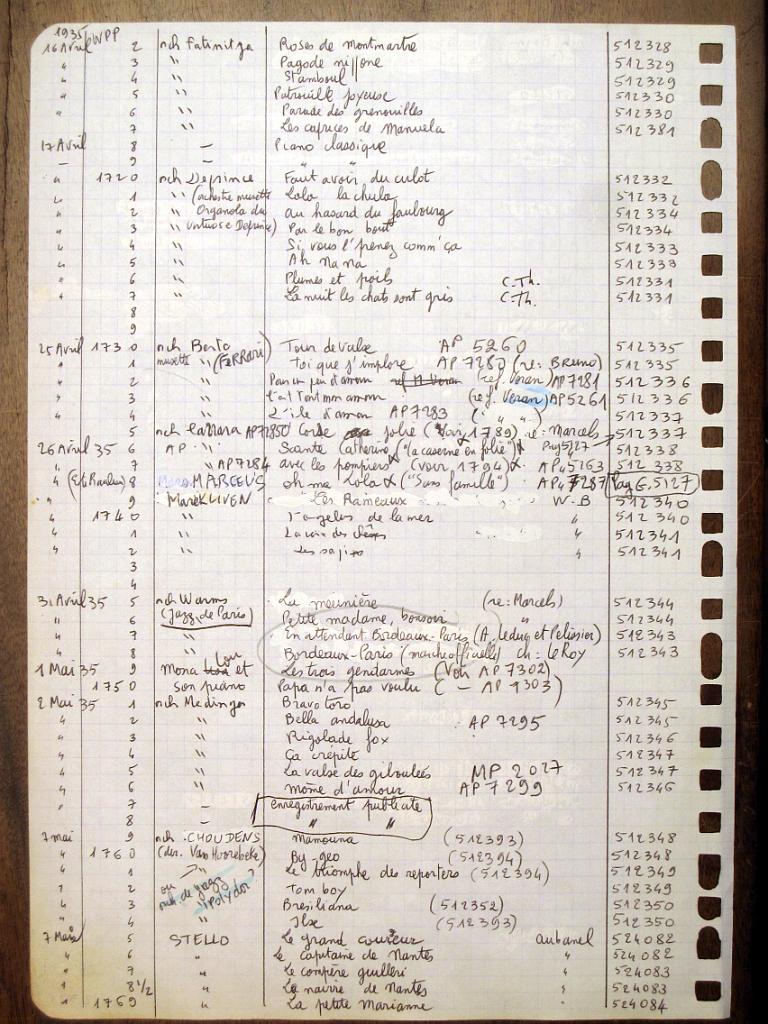 1935
16 Avril WPP 2 nch Fatinitza Roses de Montmartre 512328
" 3 " Pagode nippone 512329
" 4 " Stamboul 512329
" 5 " Patrouille joyeuse 512330
" 6 " Parade des grenouilles 512330
" 7 " Les caprices de Manuela 512381
17 Avril 8 – Piano classique
– 9 – " "
" 1720 nch Deprince Faut avoir du culot 512332
" 1 " (orchestre musette Lola la chula 512332
" 2 Organola du au hasard du faubourg 512334
" 3 virtuose Deprince) Par le bon bout 512334
" 4 " Si vous l'prenez comm' ça 512333
" 5 " Ah Na na 512333
" 6 " Plumes et poils C.Th. 512331
" 7 " La nuit les chats sont gris C.Th. 512331
8
9
25 Avril 1730 nch Berto Tour de valse AP 5260 512335
" 1 musette " (FERRARI) Toi que j'implore AP 7280 (re: Bruno) 512335
" 2 " Pour un peu d'amour (ref. Veran) AP7281 512336
" 3 " t'as tout mon amour (ref. Veran) AP5261 512336
" 4 " L'île d'amour AP7283 ( " " ) 512337
5 nch Carrara AP7285 Corse jolie (Voir 1789) re: Marcels 512337
26 Avril 35 6 AP " Sainte Catherine ("la caserne en folie") 512338
" 7 " AP7284 avec les pompiers (voir 1794) AP 5163 512 338
" 8 MARCEUS oh ma Lola ("Sans famille") AP 7287 Pag G.5127
" 9 Marek LIVEN "Les Rameaux W.B 512340
" 1740 " L'angelus de la mer " 512340
" 1 " La voix des chênes " 512341
" 2 " Les sapins " 512341
3
4
31 Avril 35 5 nch Warms La meunière (re: Marcels) 512344
" 6 (Jazz de Paris) Petite madame, bonsoir " 512344
" 7 " En attendant Bordeaux-Paris (A. Leduc et Pelissier) 512343
" 8 " Bordeaux-Paris (marche officielle) ch: Le Roy 512343
1 Mai 35 9 Mona Lou et Les trois gendarmes (Voir AP 7302)
" 1750 son piano Papa n'a pas voulu ( – AP 9303)
2 Mai 35 1 nch Medinger Bravo toro 512345
" 2 " Bella andalusa AP 7295 512345
" 3 " Rigolade fox 512346
" 4 " Ca crépite 512347
" 5 " La valse des giboulées MP 2027 512347
" 6 " mome d'amour AP 7299 512346
" 7 – enregistrement publicite
" 8 – " "
7 mai 9 nch CHOUDENS Mamouna (512393) 512348
" 1760 (dir. Van Hoorebeke) By-geo (512394) 512348
" 1 " Le triomphe des reporters (512394) 512349
" 2 ou nch. de jazz Tom boy 512349
" 3 Polydor? Bresiliana (512352) 512350
" 4 Ilse (512393) 512350
7 Mai 5 STELLO Le grand coureur aubanel 524082
" 6 " Le capitaine de Nantes " 524082
" 7 " Le compère guilleri " 524083
" 8 1/2 " Le navire de Nantes " 524083
" 1769 " La petite Marianne " 524084